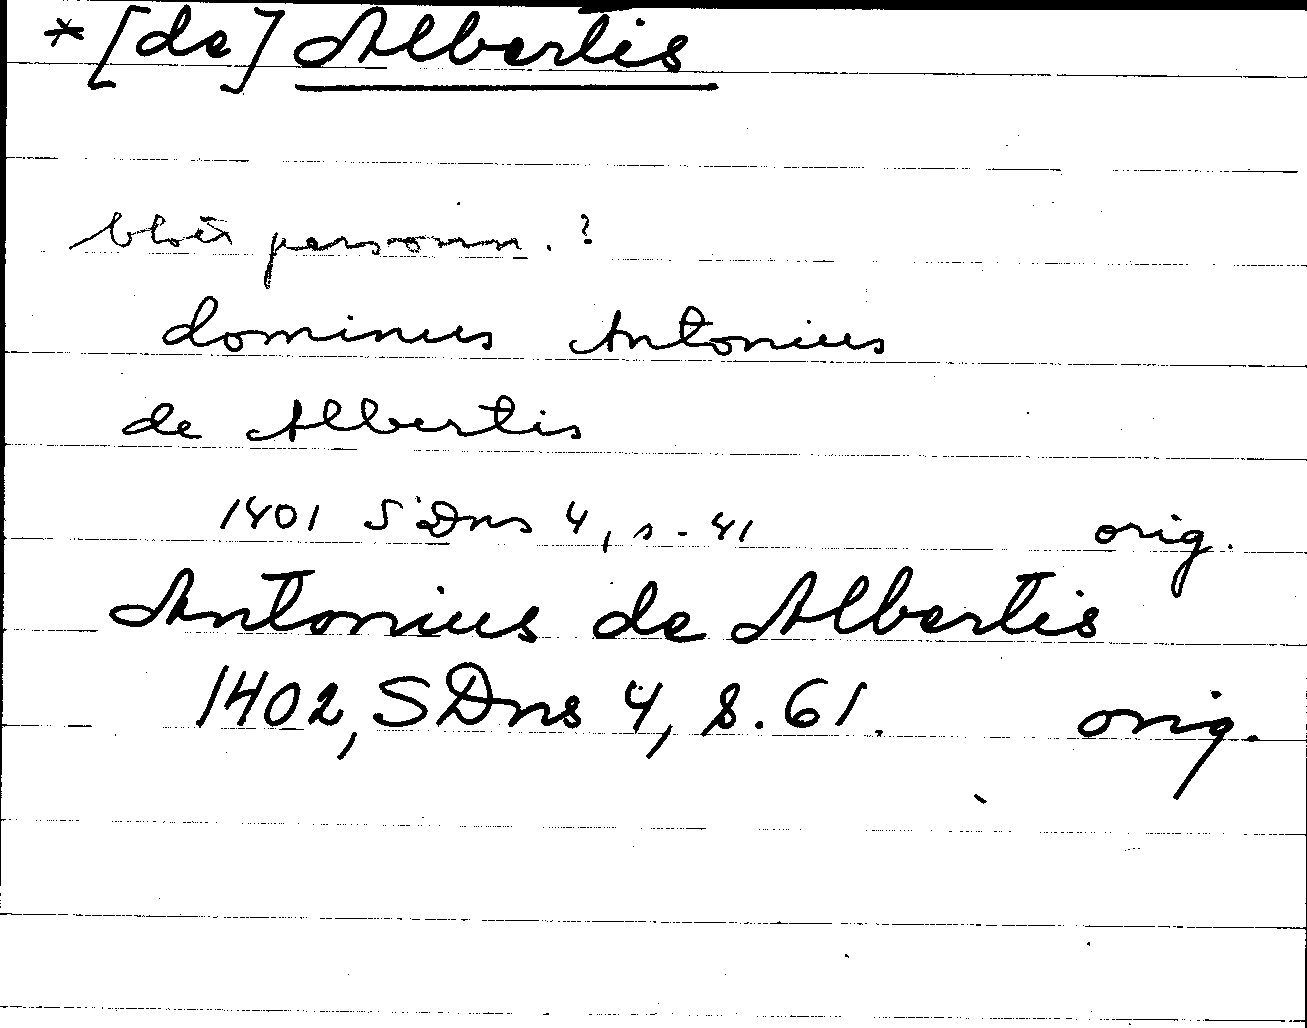 *[de] Albertis
blott personn.?
dominus Antonius
de Albertis
1401 SDns 4, s. 41 orig.
Antonius de Albertis
1402, SDns 4, s. 61. orig.